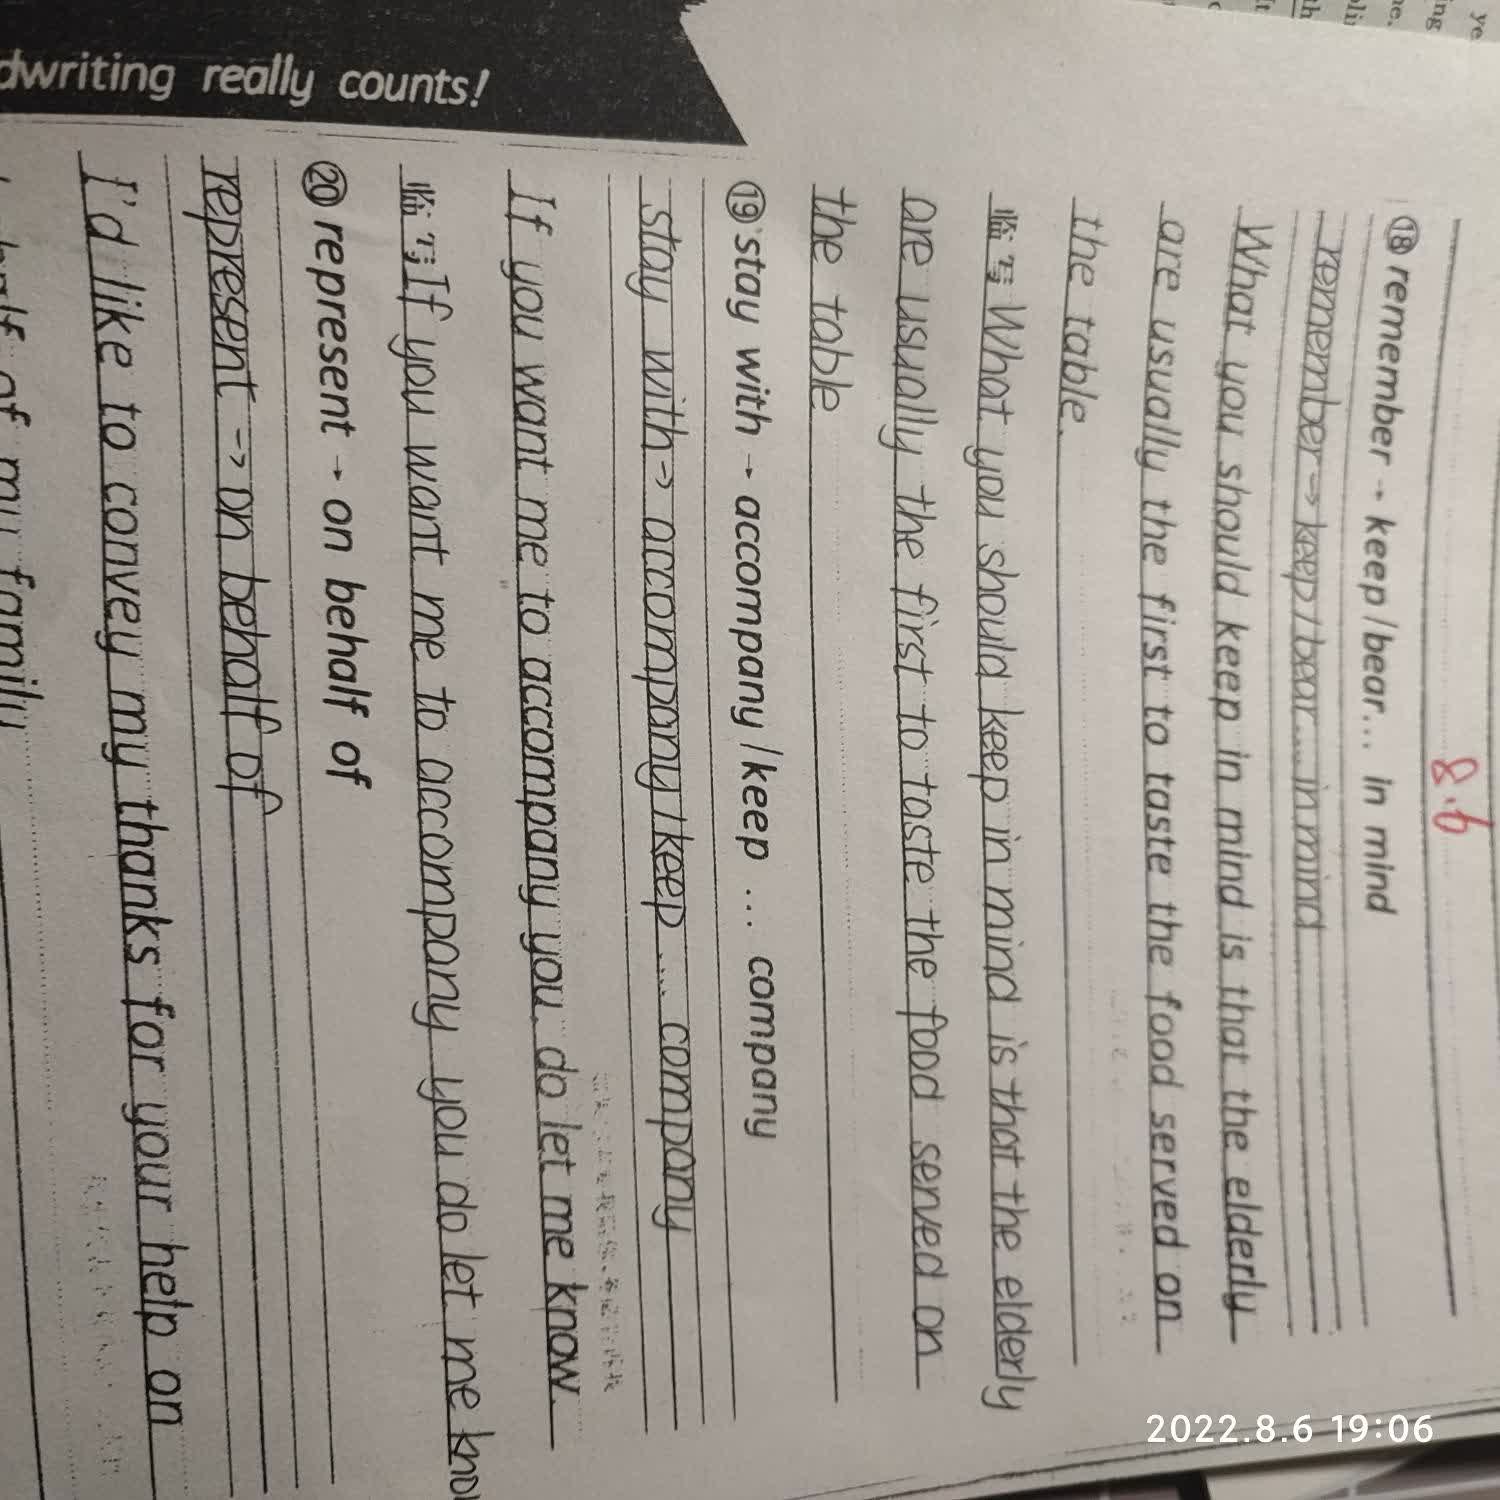 8.6
⑱ remember → keep / bear... in mind
remember ⇒ keep / bear.... in mind
What you should keep in mind is that the elderly
are usually the first to taste the food served on
the table.
临写 What you should keep in mind is that the elderly
are usually the first to taste the food served on
the table
⑲ stay with → accompany / keep ... company
stay with ⇒ accompany / keep .... company
If you want me to accompany you, do let me know.
临写 If you want me to accompany you do let me know
⑳ represent → on behalf of
represent ⇒ on behalf of
I'd like to convey my thanks for your help on
behalf of my family
dwriting really counts!
2022.8.6 19:06